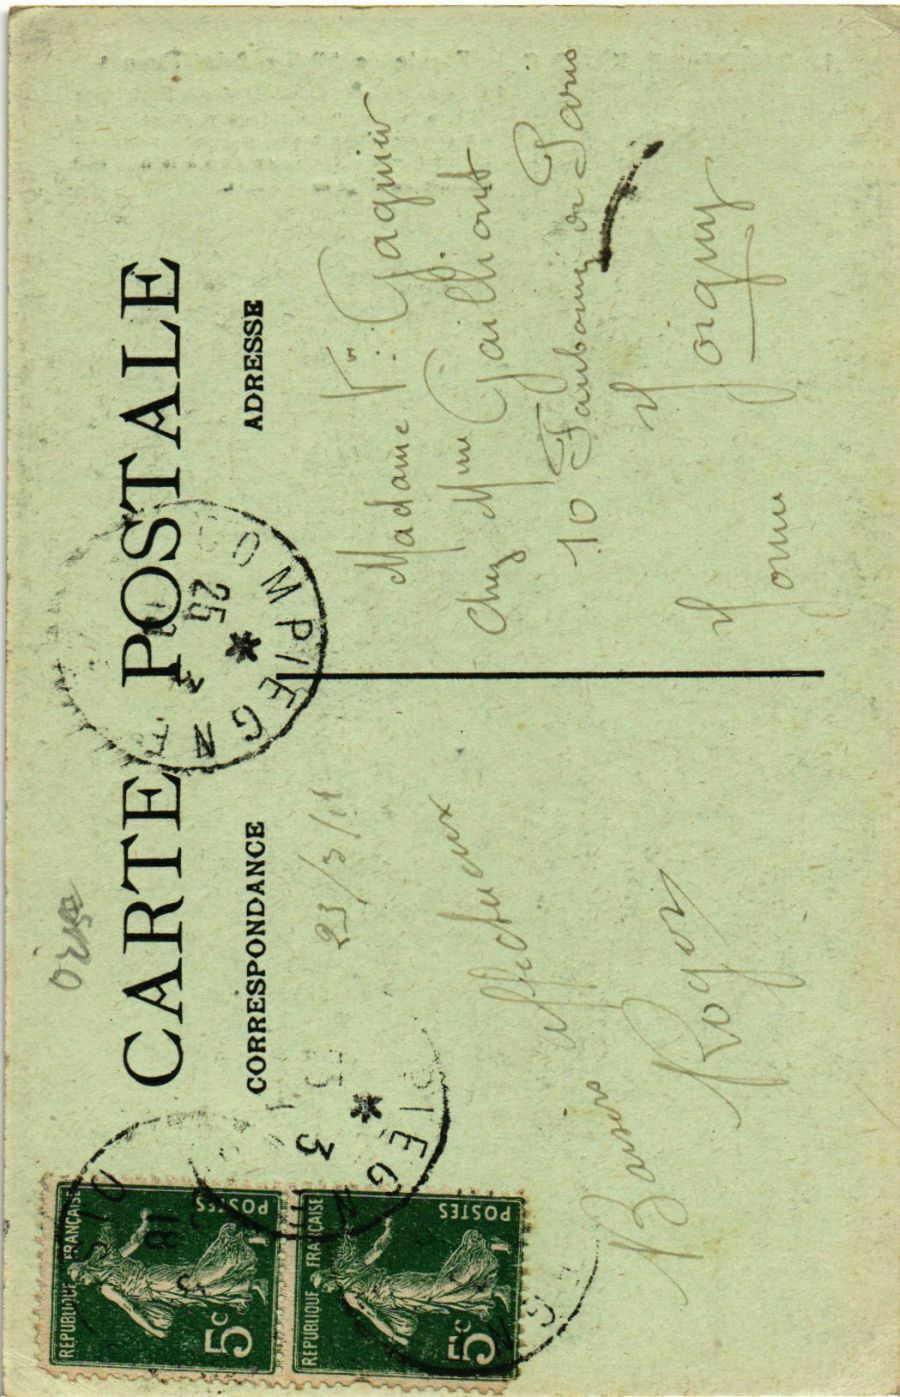 Oise
CARTE POSTALE
CORRESPONDANCE
ADRESSE
23/3/11
affectueux
Baisers
Roger
Madame Vve Gagnier
chez Mme Gailliout
10 Faubourg de Paris
Joigny
Yonne
COMPIEGNE
25
3
REPUBLIQUE FRANÇAISE
POSTES
5c
REPUBLIQUE FRANÇAISE
POSTES
5c